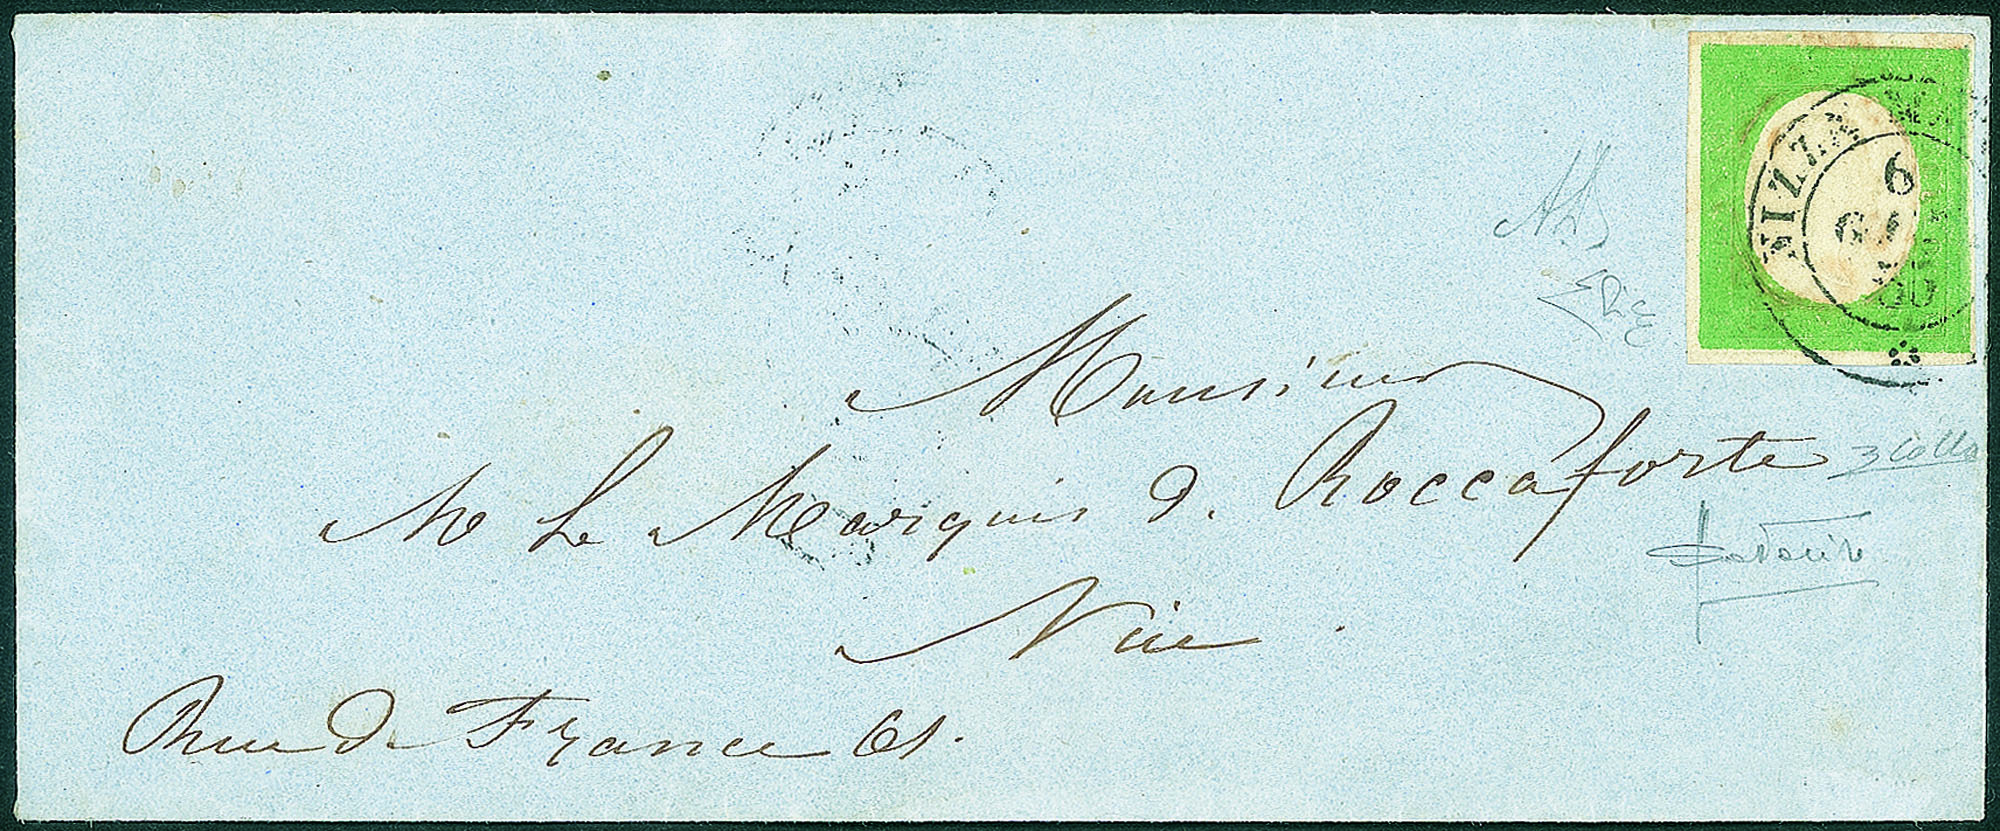 NIZZA MA
6
GIU
55
Monsieur
Mr Le Marquis d. Roccaforte
Nice
Rue de France 61.